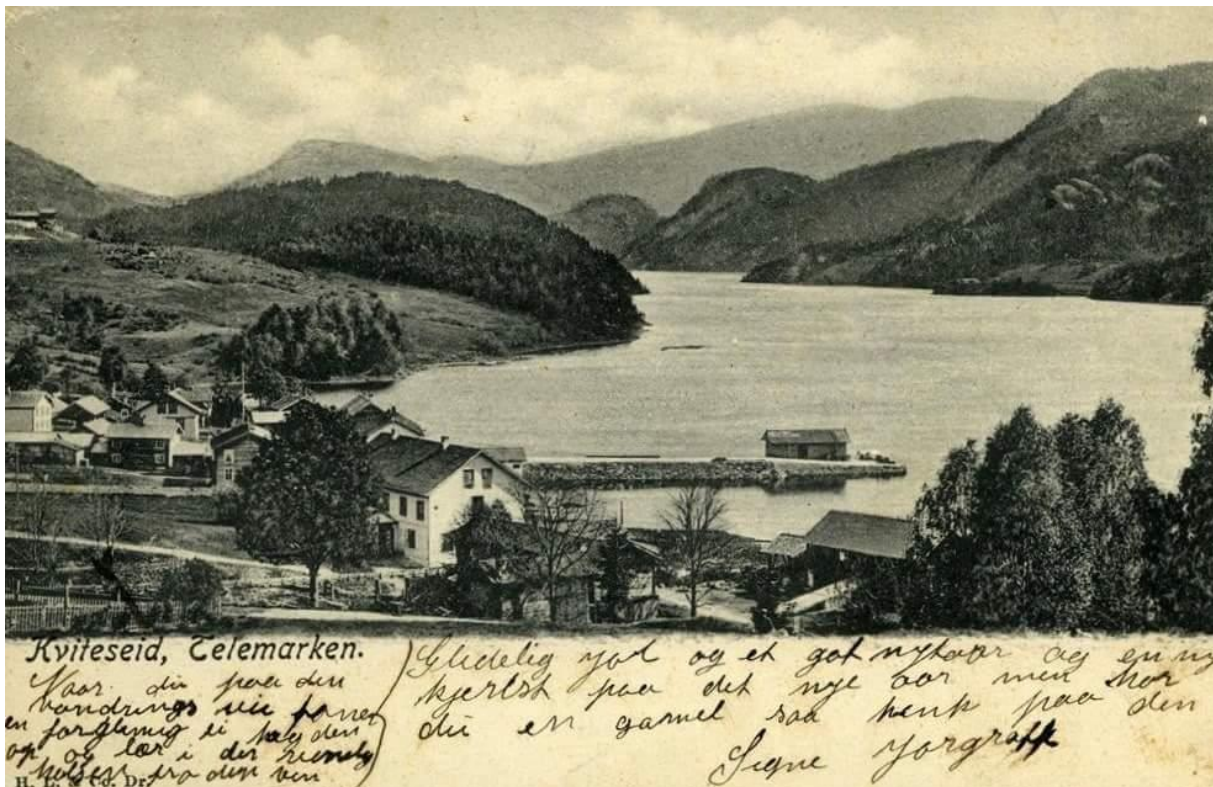 Kviteseid, Telemarken.
Naar du paa den
vandrings vei
en forglemig ei tag den
op og lær i der
fra din ven
Gledelig yol og et got nytaar og en ny
kjerest paa det nye aar men har
du en gamel saa henk paa den
Signe
& Co. Dr.